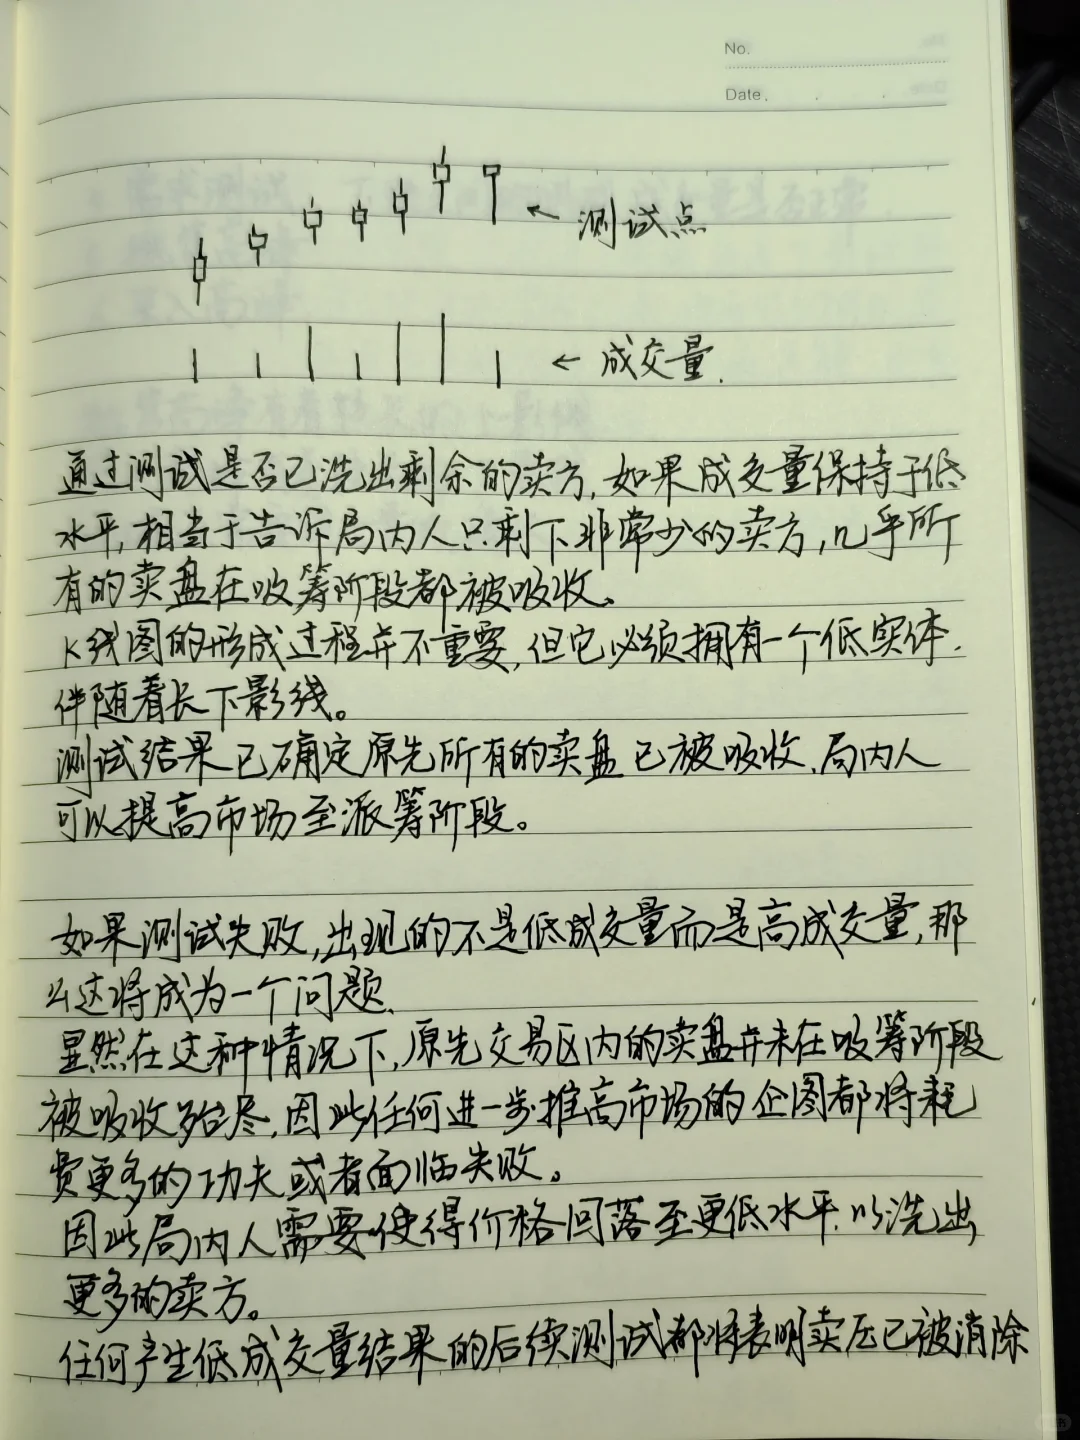 No.
Date.
← 测试点
← 成交量.
通过测试是否已洗出剩余的卖方,如果成交量保持于低
水平,相当于告诉局内人只剩下非常少的卖方,几乎所
有的卖盘在吸筹阶段都被吸收。
K线图的形成过程并不重要,但它必须拥有一个低实体.
伴随着长下影线。
测试结果已确定原先所有的卖盘已被吸收.局内人
可以提高市场至派筹阶段。
如果测试失败,出现的不是低成交量而是高成交量,那
么这将成为一个问题.
显然在这种情况下,原先交易区内的卖盘并未在吸筹阶段
被吸收殆尽,因此任何进一步推高市场的企图都将耗
费更多的功夫或者面临失败。
因此局内人需要使得价格回落至更低水平.以洗出
更多的卖方。
任何产生低成交量结果的后续测试都将表明卖压已被消除